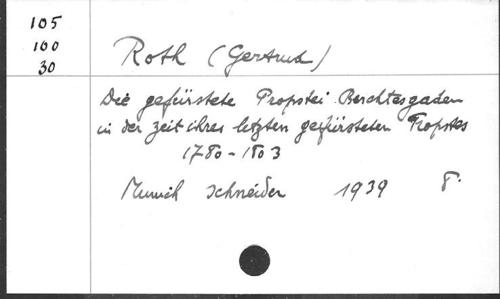 105
100
30
Roth (Gertrud)
Die gefürstete Propstei Berchtesgaden
in der zeit ihres letzten gefürsteten Propstes
1780-1803
Munich Schneider 1939 8°